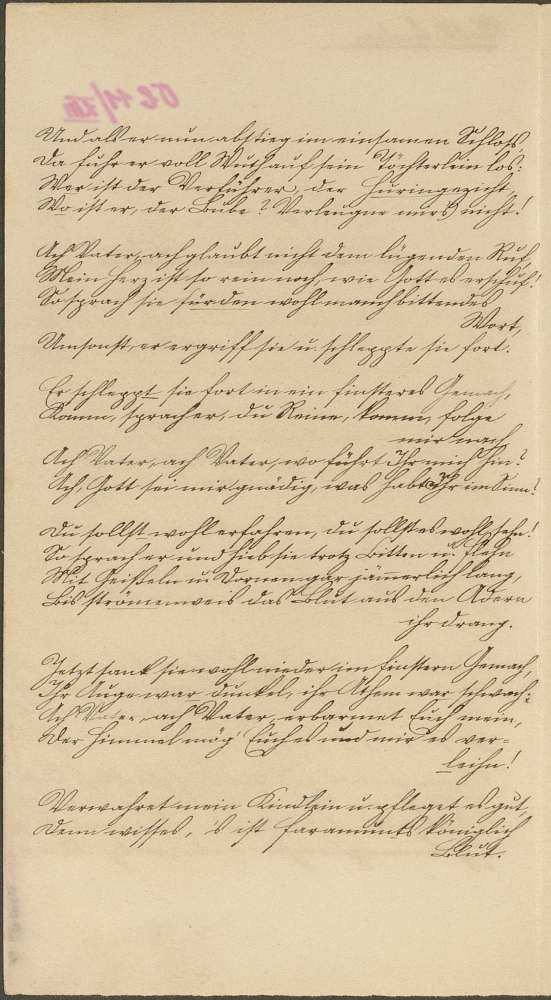 Und als er nun abstieg im einsamen Schloß,
Da fuhr er voll Wuth auf sein Töchterlein los:
Wer ist der Verführer, der Hurengezücht,
Wo ist er, der Bube? Verleugne mirs nicht!
Ach Vater, ach glaubt nicht dem lügenden Ruf,
Mein Herz ist so rein noch, wie Gott es erschuf!
So sprach sie für den wohl manch bittendes
Wort,
Umsonst, er ergriff sie u. schleppte sie fort.
Er schleppt sie fort in ein finsteres Gemach,
Komm, sprach er, du Reine, komm, folge
mir nach,
Ach Vater, ach Vater, wo führt Ihr mich hin?
Ach, Gott sei mir gnädig, was habt Ihr im Sinn?
Du sollst wohl erfahren, du sollst es wohl sehn!
So sprach er und hub sie trotz Bitten u. Flehn
Mit Geißeln u. Dornen gar jämmerlich lang,
Bis strömenweis das Blut aus den Adern
ihr drang.
Jetzt sank sie wohl nieder im finstern Gemach,
Ihr Auge war dunkel, ihr Athem war schwach:
Ach Vater, ach Vater, erbarmet Euch mein,
Der Himmel mög' Euch es und mir es ver-
leihn!
Verwahret mein Kindlein u. pfleget es gut,
Denn wisset, 's ist Faramunds königlich
Blut.